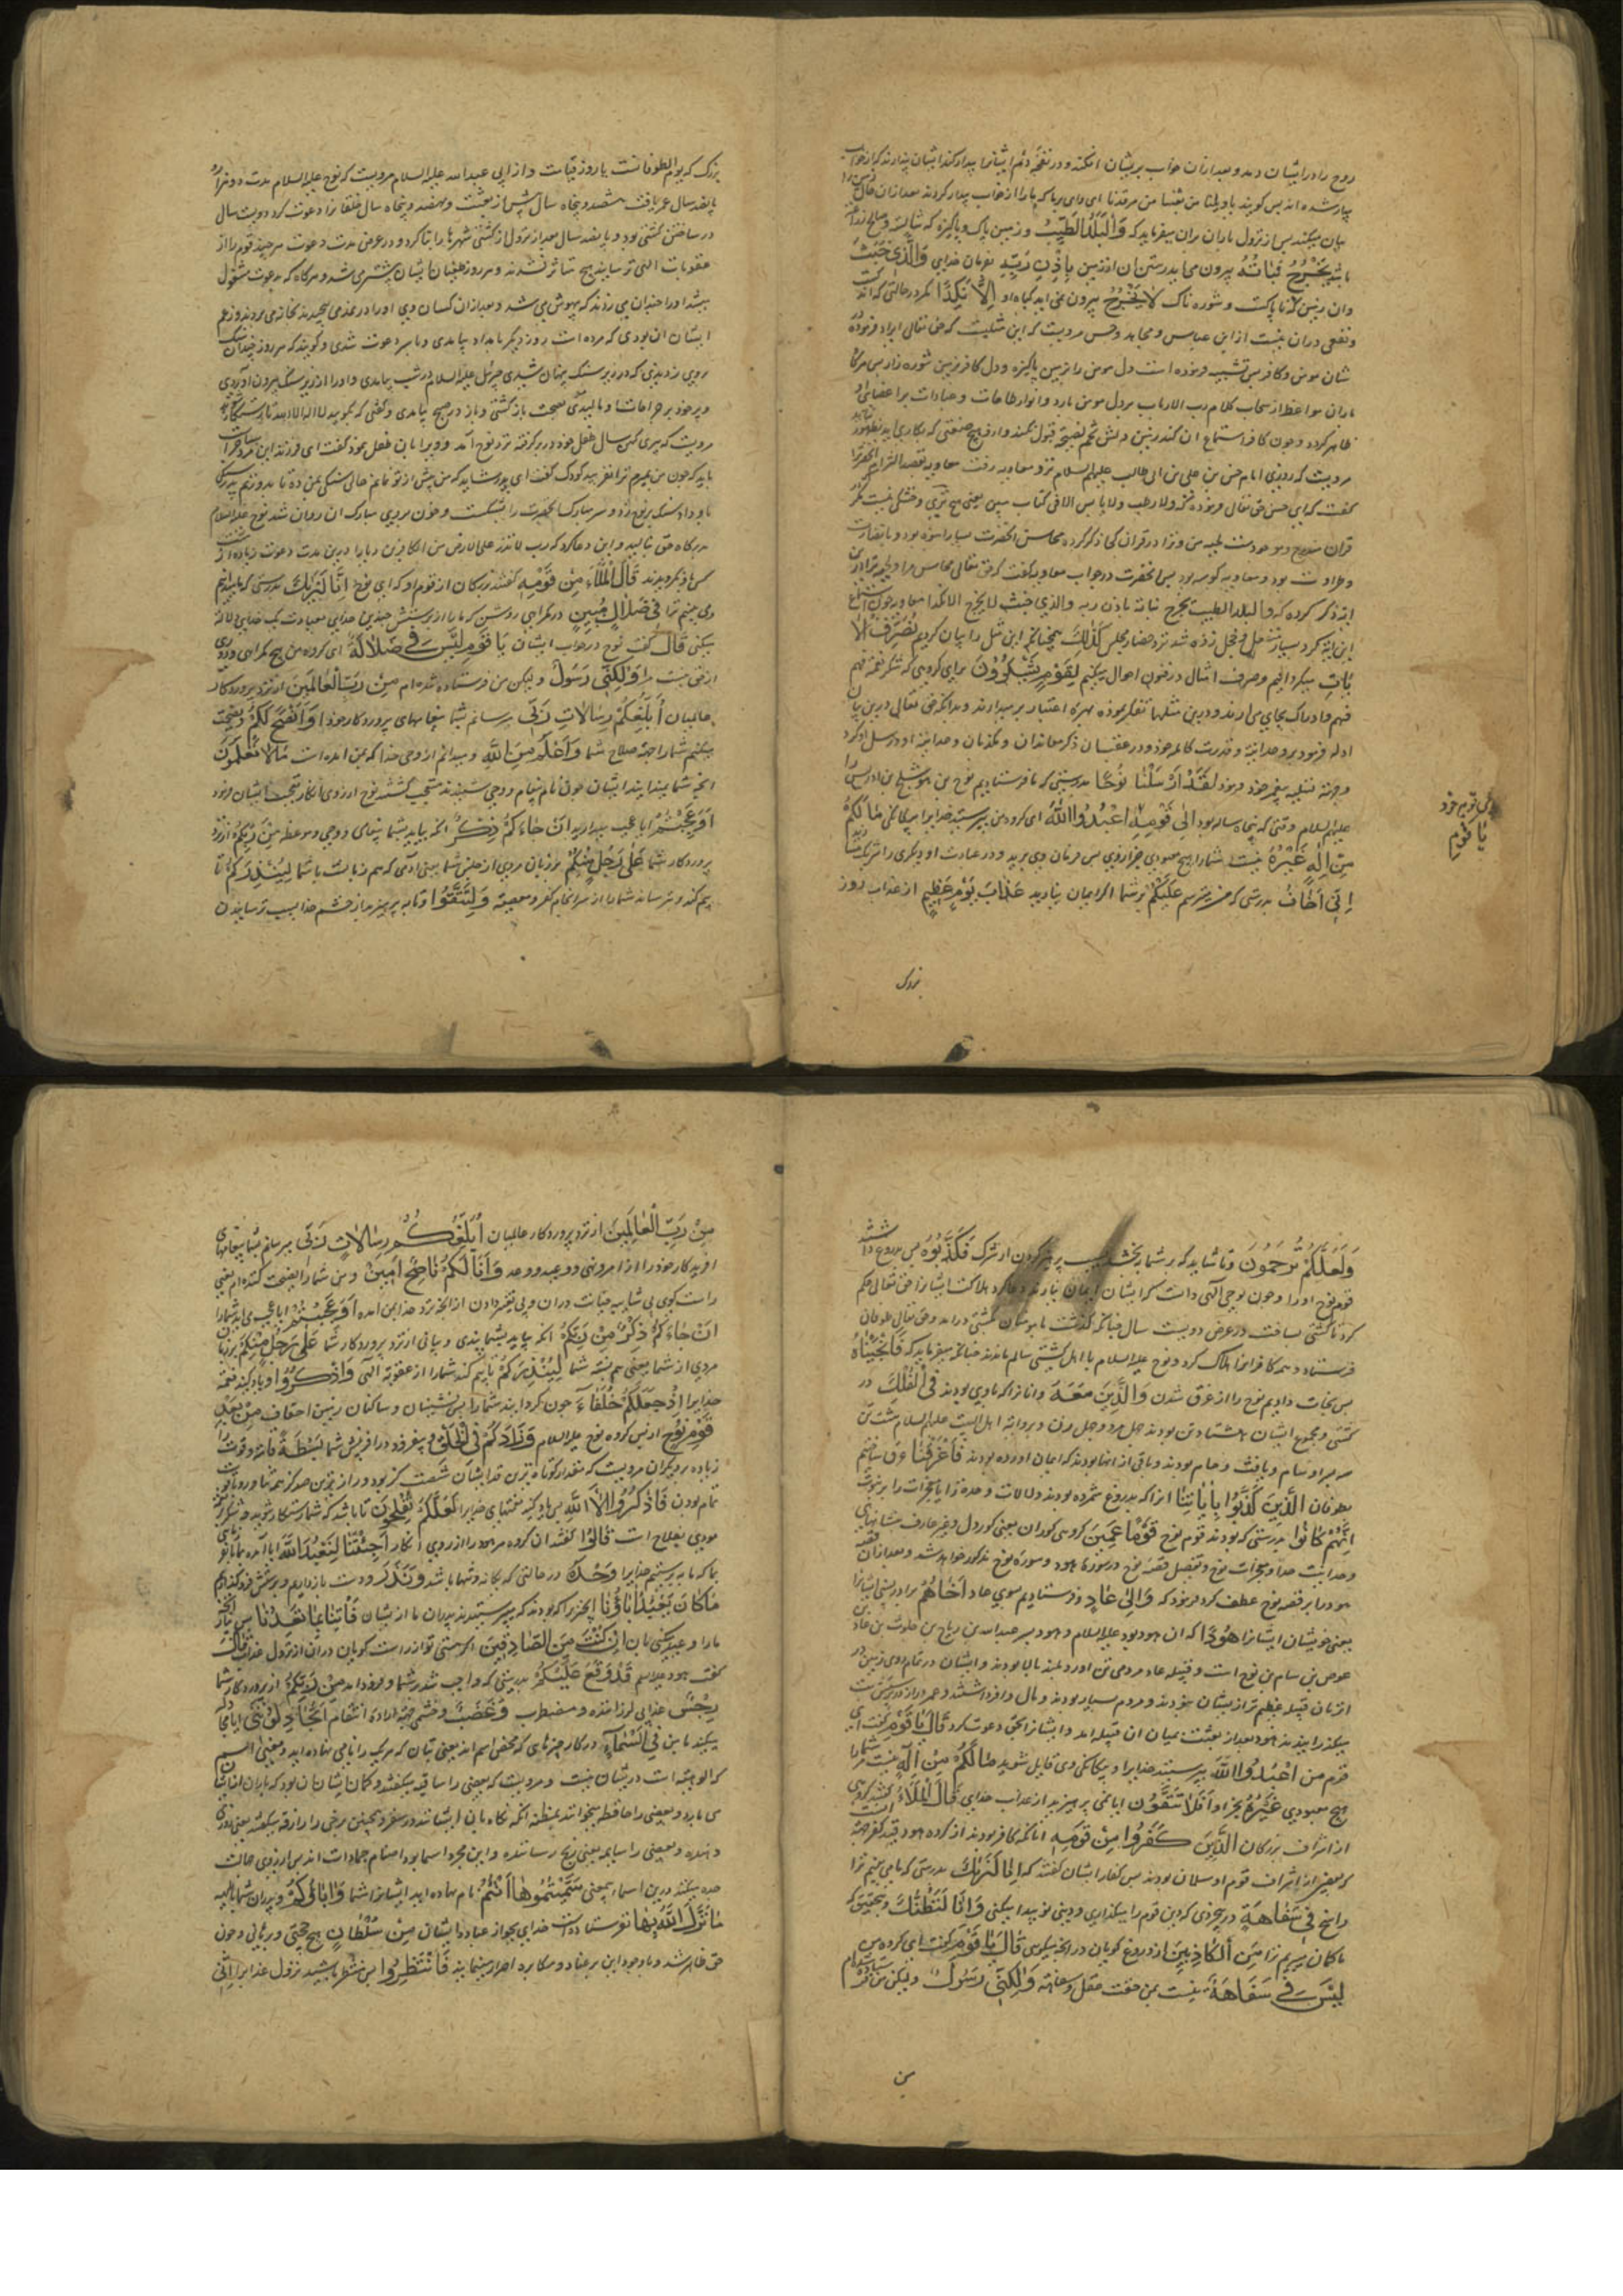 روح را در ایشان دمد و بعد از ان خواب بریشان افکند و در نفخه دوم ایشانرا بیدار کند ایشان پندارند که از خواب
بیدار شده اند پس کویند یا ویلنا من بعثنا من مرقدنا ای وای بر ما که ما را از خواب بیدار کردند بعد از ان حال زمین را
بیان میکند پس از نزول باران بران میفرماید که وَالْبَلَدُ الطَّیِّبُ و زمین پاک و پاکیزه که شایسته و صالح زراعت
باشد یَخْرُجُ نَبَاتُهُ بیرون می اید رستنی ان از زمین بِاِذْنِ رَبِّهِ بفرمان خدای وَالَّذِی خَبُثَ
وان زمینی که ناپاکست و شوره ناک لَا یَخْرُجُ بیرون نمی اید کیاه او اِلَّا نَکِدًا مکر در حالتی که اندک
و نفعی دران نیست از ابن عباس و مجاهد و حسن مرویست که این مثلیست که حق تعالی ایراد فرموده
شان مومن و کافر پس تشبیه فرموده است دل مومن را بزمین پاکیزه و دل کافر بزمین شوره زار پس هرکاه
باران مواعظ از سحاب کلام رب الارباب بر دل مومن بارد و انوار طاعات و عبادات بر اعضای او
ظاهر کردد و چون کافر استماع ان کند زمین دلش تخم نصیحت قبول نکند و از و هیچ صفتی که بکار اید بظهور نیاید
مرویست که روزی امام حسن بن علی بن ابی طالب علیهم السلام نزد معاویه رفت معاویه بقصد الزام انحضرت
کفت که ای حسن حق تعالی فرموده که ولا رطب ولا یابس الا فی کتاب مبین یعنی هیچ تری و خشکی نیست مکر در
قران مشروح و موجودست لحیه من و ترا در قران کجا ذکر کرده محاسن انحضرت بسیار انبوه بود و با نضارت
و طراوت بود و معاویه کوسه بود پس انحضرت در جواب معاویه گفت که حق تعالی محاسن مرا و لحیه ترا درین
ایه ذکر کرده که والبلد الطیب یخرج نباته باذن ربه والذی خبث لا یخرج الا نکدا معاویه چون استماع
این ایه کرد بسیار منفعل و خجل زده شد نزد حضار مجلس کَذٰلِکَ همچنانکه این مثل را بیان کردیم نُصَرِّفُ الْاٰ
یَاتِ میکردانیم و صرف امثال در فنون احوال میکنیم لِقَوْمٍ یَشْکُرُونَ برای کروهی که شکر نعمة فهم
فهم و ادراک بجای می ارند و درین مثلها تفکر نموده بهره اعتبار بر میدارند و بدانکه حق تعالی درین بیان
ادله فرمود بر وحدانیة و قدرت کامله خود و در عقب ان ذکر معاندان و مکذبان وحدانیة او و رسل او کرد
و جهة تسلیه پیغمبر خود فرمود لَقَدْ اَرْسَلْنَا نُوحًا بدرستی که ما فرستادیم نوح بن متوشلخ بن ادریس را
علیهم السلام وقتی که پنجاه ساله بود اِلٰی قَوْمِهِ اعْبُدُوا اللّٰهَ ای کروه من بپرستید خدایرا بیکانکی مَا لَکُمْ
مِنْ اِلٰهٍ غَیْرُهُ نیست شما را هیچ معبودی جز او پس فرمان وی برید و در عبادت او دیکری را شریک مسازید
اِنِّی اَخَافُ بدرستی که من میترسم عَلَیْکُمْ بر شما اکر ایمان نیارید عَذَابَ یَوْمٍ عَظِیمٍ از عذاب روز
بزرک
بسوی قوم خود
یَا قَوْمِ
بزرک که یوم الطوفانست یا روز قیامت و از ابی عبد الله علیه السلام مرویست که نوح علیه السلام مدت دو هزار و
پانصد سال عمر یافت هشصد و پنجاه سال پیش از بعثت و نهصد و پنجاه سال خلقانرا دعوت کرد دویست سال
در ساختن کشتی بود و پانصد سال بعد از نزول از کشتی شهرها را بنا کرد و در عرض مدت دعوت هرچند قوم را از
عقوبات الهی ترسانید هیچ متاثر نشدند و هر روز طغیان ایشان بیشتر می شد و هرکاه که بدعوت مشغول
میشد او را چندان می زدند که بیهوش می شد و بعد از ان کسان وی او را در نمد می پیچیدند بخانه می بردند و زعم
ایشان ان بودی که مرده است روز دیکر بامداد بیامدی و با سر دعوت شدی و کویند که هر روز چندان سنک
بروی زدندی که در زیر سنک پنهان شدی جبرئیل علیه السلام در شب بیامدی و او را از زیر سنک بیرون اوردی
و پر خود بر جراحتها و مالیدی صحت باز کشتی و باز در صبح بیامدی و کفتی که بکویید لا اله الا الله تا رستکار شوید
مرویست که پیری کهن سال طفل خود در بر کرفته نزد نوح آمد و ویرا بان طفل نمود گفت ای فرزند این مرد جراست
باید که چون من بمیرم ترا نفریبد کودک گفت ای پدر شاید که من پیش از تو نمانم حالی سنکی بمن ده تا بدو زنم پدر سنک
باو داد سنک بر نوح زد و سر مبارک انحضرت را بشکست و خون بر روی مبارک ان روان شد نوح علیه السلام
بدرکاه حق نالید و این دعا کرد که رب لا تذر علی الارض من الکافرین دیارا درین مدت دعوت زیاده از هشت
کس بدو نکرویدند قَالَ الْمَلَاءُ مِنْ قَوْمِهِ گفتند بزرکان از قوم او که ای نوح اِنَّا لَنَرٰیکَ بدرستی که ما میدانیم
و می بینم ترا فِی ضَلَالٍ مُبِینٍ در کمراهی روشن که ما را از پرستش چندین خدای بعبادت یک خدایی دلالة
میکنی قَالَ کفت نوح در جواب ایشان یَا قَوْمِ لَیْسَ بِی ضَلَالَةٌ ای کروه من هیچ کمراهی و دوری
از حق نیست مرا وَلٰکِنِّی رَسُولٌ و لیکن من فرستاده شده ام مِنْ رَبِّ الْعَالَمِینَ از نزد پروردکار
عالمیان اُبَلِّغُکُمْ رِسَالَاتِ رَبِّی میرسانم بشما پیغامهای پروردکار خود را وَاَنْصَحُ لَکُمْ و نصیحت
میکنم شما را جهة صلاح شما وَاَعْلَمُ مِنَ اللّٰهِ و میدانم از وحی خدا که بمن امده است مَا لَا تَعْلَمُونَ
انچه شما نمیدانید ایشان چون نام پیغام و وحی شنیدند متعجب کشتند نوح از روی انکار تعجب ایشان فرمود
اَوَعَجِبْتُمْ ایا عجب میدارید اَنْ جَاءَکُمْ ذِکْرٌ انکه بیاید بشما پندی و وحی و موعظه مِنْ رَبِّکُمْ از نزد
پروردکار شما عَلٰی رَجُلٍ مِنْکُمْ بر زبان مردی از جنس شما یعنی ادمی که هم زبانست با شما لِیُنْذِرَکُمْ تا
بیم کند و ترساند شما را از سرانجام کفر و معصیة وَلِتَتَّقُوا و تا بپرهیزید از خشم خدا بسبب ترسانیدن
وَلَعَلَّکُمْ تُرْحَمُونَ و تا شاید که بر شما بخشند بسبب پرهیز کردن از شرک فَکَذَّبُوهُ پس بدروغ داشتند
قوم نوح او را و چون بوحی الهی دانست که ایشان ایمان نیارند دعا کرد هلاکت ایشانرا حق تعالی حکم
کرد تا کشتی بساخت در عرض دویست سال چنانکه کذشت با مومنان بکشتی درامد و حق تعالی طوفان
فرستاد و همه کافرانرا هلاک کرد و نوح علیه السلام با اهل کشتی سالم ماندند چنانکه میفرماید که فَاَنْجَیْنَاهُ
پس نجات دادیم نوح را از غرق شدن وَالَّذِینَ مَعَهُ و انانرا که با وی بودند فِی الْفُلْکِ در
کشتی و مجموع ایشان هشتاد تن بودند چهل مرد و چهل زن و بروایة اهل البیت علیهم السلام هشت تن
سه پسر او سام و یافث و حام بودند و باقی از انها بودند که ایمان اورده بودند فَاَغْرَقْنَا و غرق ساختیم
بطوفان الَّذِینَ کَذَّبُوا بِاٰیَاتِنَا انرا که بدروغ شمرده بودند دلالات وحدت ما را یا معجزات را بر نبوت
اِنَّهُمْ کَانُوا بدرستی که بودند قوم نوح قَوْمًا عَمِینَ کروهی کوران یعنی کور دل و غیر عارف بنشانهای
وحدانیت خدا و معجزات نوح و تفصیل قصه نوح در سوره هود و سوره نوح مذکور خواهد شد و بعد از ان قصه
هود را بر قصه نوح عطف کرد فرمود که وَاِلٰی عَادٍ و فرستادیم بسوی عاد اَخَاهُمْ برادر ایشانرا
یعنی خویشان ایشانرا هُودًا که ان هود بود علیه السلام و هود پسر عبد الله بن ریاح بن خلود بن عاد بن
عوص بن سام بن نوح است و قبیله عاد مردمی تن اور و بلند بالا بودند و ایشان در تمام روی زمین در
ان زمان قبیله عظیم تر از ایشان نبودند و مردم بسیار بودند و مال وافر داشتند و عمر دراز در بت پرستی
میکذرانیدند هود بعد از بعثت بمیان ان قبیله امد و ایشانرا بحق دعوت کرد قَالَ یَا قَوْمِ گفت ای
قوم من اعْبُدُوا اللّٰهَ بپرستید خدایرا و بیکانکی وی قایل شوید مَا لَکُمْ مِنْ اِلٰهٍ نیست مر شما را
هیچ معبودی غَیْرُهُ بجز او اَفَلَا تَتَّقُونَ ایا نمی پرهیزید از عذاب خدای قَالَ الْمَلَاءُ گفتند کروهی
از اشراف بزرکان الَّذِینَ کَفَرُوا مِنْ قَوْمِهِ انانکه کافر بودند از کروه هود قید کفر جهة انست
که بعضی از اشراف قوم او مسلمان بودند پس کفار ایشان کفتند که اِنَّا لَنَرٰیکَ بدرستی که ما می بینیم ترا
راسخ فِی سَفَاهَةٍ در بیخردی که دین قوم را میکذاری و دینی نو پیدا میکنی وَاِنَّا لَنَظُنُّکَ و بتحقیق که
ما کمان میبریم ترا مِنَ الْکَاذِبِینَ از دروغ کویان در انچه میکویی قَالَ یَا قَوْمِ کفت ای کروه من
لَیْسَ بِی سَفَاهَةٌ نیست بمن خفت عقل و سفاهة وَلٰکِنِّی رَسُولٌ و لیکن من فرستاده ام
من
مِنْ رَبِّ الْعَالَمِینَ از نزد پروردکار عالمیان اُبَلِّغُکُمْ رِسَالَاتِ رَبِّی میرسانم بشما پیغامهای
افریدکار خود را از امر و نهی و وعید و وعد وَاَنَا لَکُمْ نَاصِحٌ اَمِینٌ و من شما را نصیحت کننده ام یعنی
راست کوی بی شایبه خیانت دران و بی تغییر دادن از انچه نزد خدا بمن امده اَوَعَجِبْتُمْ ایا عجب می اید شما را
اَنْ جَاءَکُمْ ذِکْرٌ مِنْ رَبِّکُمْ انکه بیاید بشما پندی و بیانی از نزد پروردکار شما عَلٰی رَجُلٍ مِنْکُمْ بر زبان
مردی از شما یعنی هم نسبة شما لِیُنْذِرَکُمْ تا بیم کند شما را از عقوبة الهی وَاذْکُرُوا و یاد کنید نعمة
خدایرا اِذْ جَعَلَکُمْ خُلَفَاءَ چون کردانید شما را پس نشینان و ساکنان زمین احقاف مِنْ بَعْدِ
قَوْمِ نُوحٍ از پس کروه نوح علیه السلام وَزَادَکُمْ فِی الْخَلْقِ و بیفزود در افرینش شما بَسْطَةً قامة و قوت را
زیاده بر دیکران مرویست که مقدار کوتاه ترین قد ایشان شصت کز بود و درازترین صد کز
تمام بودن فَاذْکُرُوا اٰلَاءَ اللّٰهِ پس یاد کنید نعمتهای خدایرا لَعَلَّکُمْ تُفْلِحُونَ تا باشد که شما رستکار شوید
مودی بفلاح است قَالُوا کفتند ان کروه مر هود را از روی انکار اَجِئْتَنَا لِنَعْبُدَ اللّٰهَ ایا آمده
بما که ما بپرستیم خدایرا وَحْدَهُ در حالتی که یکانه و تنها باشد وَنَذَرَ و دست بازداریم
مَا کَانَ یَعْبُدُ اٰبَاؤُنَا انچیزیرا که بودند که میپرستیدند پدران ما از بتان فَاْتِنَا بِمَا تَعِدُنَا پس بیار انچه
ما را وعید میکنی بان اِنْ کُنْتَ مِنَ الصَّادِقِینَ اکر هستی تو از راست کویان دران از نزول عذاب قَالَ
گفت هود علیه السلم قَدْ وَقَعَ عَلَیْکُمْ بدرستی که واجب شد بر شما و فرود امد مِنْ رَبِّکُمْ از پروردکار شما
رِجْسٌ عذابی لرزاننده و مضطرب وَغَضَبٌ و خشمی جهة اراده انتقام اَتُجَادِلُونَنِی ایا مجادله
میکنید با من فِی اَسْمَاءٍ در کار چیزهایی که محض اسم اند یعنی بتان که هر یک را نامی نهاده اید و معنی اسم
که الوهیة است در ایشان نیست و مرویست که بعضی را ساقیه میکفتند و کمان ایشان ان بود که باران از ایشان
می بارد و بعضی را حافظه میخواندند بمظنه انکه نکاه بان ایشانند در سفر و همچنین برخی را رازقه میکفتند یعنی روزی
دهنده و بعضی را سایمه یعنی رنج رساننده و این مجرد اسما بود اصنام جمادات اند پس از روی عناد
مجادله میکنید درین اسماء بیمعنی سَمَّیْتُمُوهَا اَنْتُمْ نام نهاده اید ایشانرا شما وَاٰبَاؤُکُمْ و پدران شما
مَا نَزَّلَ اللّٰهُ بِهَا نفرستاده است خدای بجواز عبادة ایشان مِنْ سُلْطَانٍ هیچ حجتی و برهانی و چون
حق ظاهر شد و با وجود این بر عناد و مکابره اصرار مینمایند فَانْتَظِرُوا پس منتظر باشید نزول عذاب را اِنِّی